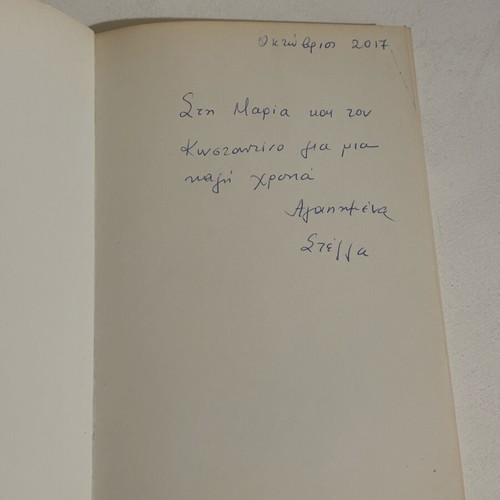 Οκτώβριος 2017
Στη Μαρία και τον
Κωνσταντίνο για μια
καλή χρονιά
Αγαπημένα
Στέλλα